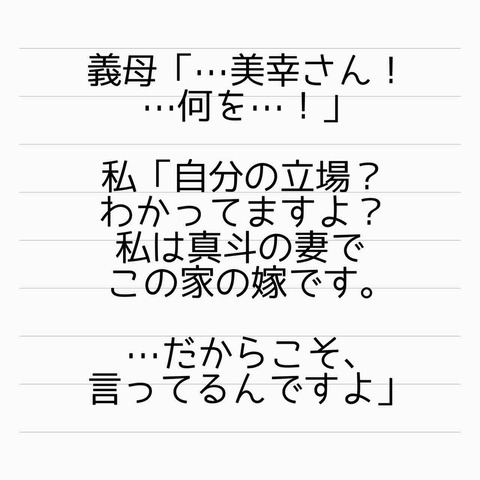 義母「…美幸さん！
…何を…！」
私「自分の立場？
わかってますよ？
私は真斗の妻で
この家の嫁です。
…だからこそ、
言ってるんですよ」